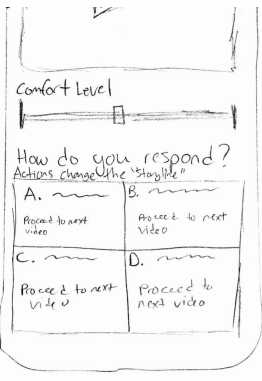 Comfort Level
How do you respond?
Actions change the "Storyline"
A.
Proceed to next
video
B.
Proceed to next
video
C.
Proceed to next
video
D.
Proceed to
next video